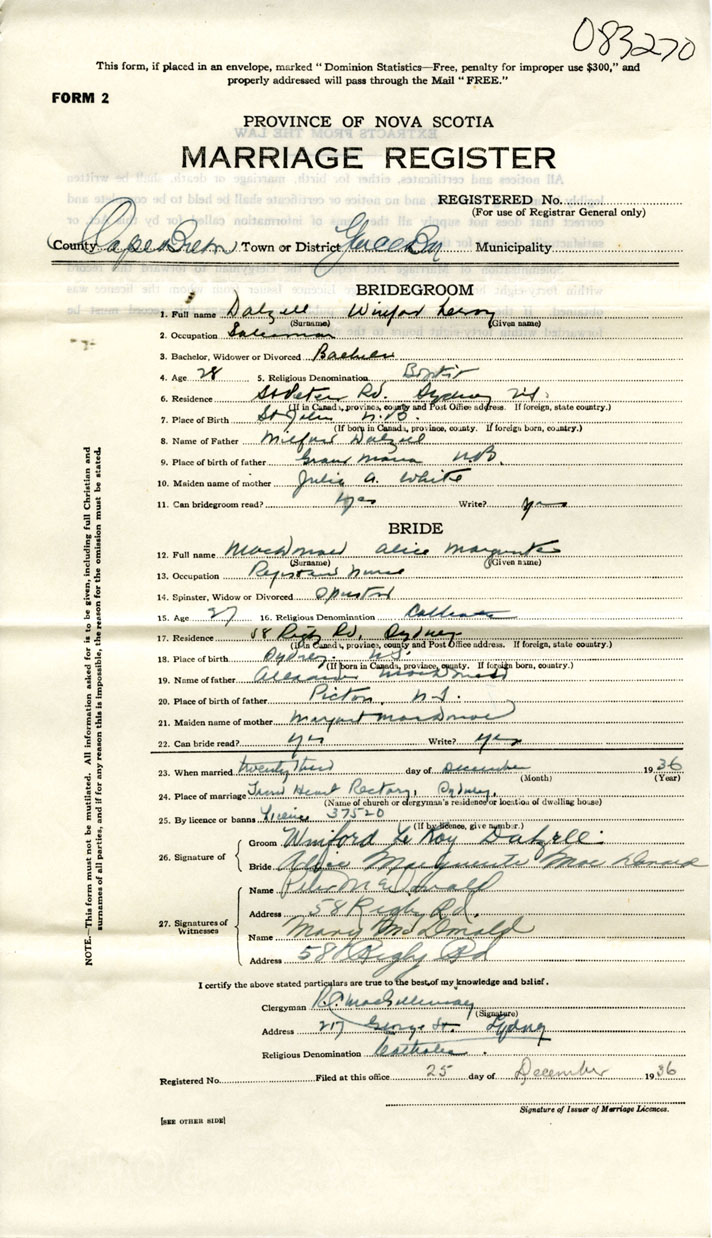 083270
This form, if placed in an envelope, marked "Dominion Statistics—Free, penalty for improper use $300," and
properly addressed will pass through the Mail "FREE."
FORM 2
PROVINCE OF NOVA SCOTIA
MARRIAGE REGISTER
REGISTERED No.
(For use of Registrar General only)
County Cape Breton Town or District Glace Bay Municipality
BRIDEGROOM
1. Full name Dalzell Winford Leroy
(Surname) (Given name)
2. Occupation Salesman
3. Bachelor, Widower or Divorced Bachelor
4. Age 28 5. Religious Denomination Baptist
6. Residence St Peters Rd. Sydney N.S.
(If in Canada, province, county and Post Office address. If foreign, state country.)
7. Place of Birth St John N.B.
(If born in Canada, province, county. If foreign born, country.)
8. Name of Father Milford Dalzell
9. Place of birth of father Grand Manan N.B.
10. Maiden name of mother Julia A. White
11. Can bridegroom read? yes Write? yes
BRIDE
12. Full name MacDonald Alice Marguerite
(Surname) (Given name)
13. Occupation Registered Nurse
14. Spinster, Widow or Divorced Spinster
15. Age 27 16. Religious Denomination Catholic
17. Residence 58 Rigby Rd, Sydney
(If in Canada, province, county and Post Office address. If foreign, state country.)
18. Place of birth Sydney N.S.
(If born in Canada, province, county. If foreign born, country.)
19. Name of father Alexander MacDonald
20. Place of birth of father Pictou, N.S.
21. Maiden name of mother Margaret MacDonald
22. Can bride read? yes Write? yes
23. When married twenty third day of December 1936
(Month) (Year)
24. Place of marriage Heart Rectory, Sydney,
(Name of church or clergyman's residence or location of dwelling house)
25. By licence or banns Licence 37520
(If by licence, give number.)
26. Signature of Groom Winford Le Roy Dalzell
Bride Alice Marguerite MacDonald
27. Signatures of Witnesses
Name Peter MacDonald
Address 58 Rigby Rd.
Name Mary McDonald
Address 58 Rigby Rd
I certify the above stated particulars are true to the best of my knowledge and belief.
Clergyman
(Signature)
Address 217 George St. Sydney
Religious Denomination Catholic.
Registered No. Filed at this office 25 day of December 1936
Signature of Issuer of Marriage Licences.
[SEE OTHER SIDE]
NOTE.—This form must not be mutilated. All information asked for is to be given, including full Christian and
surnames of all parties, and if for any reason this is impossible, the reason for the omission must be stated.